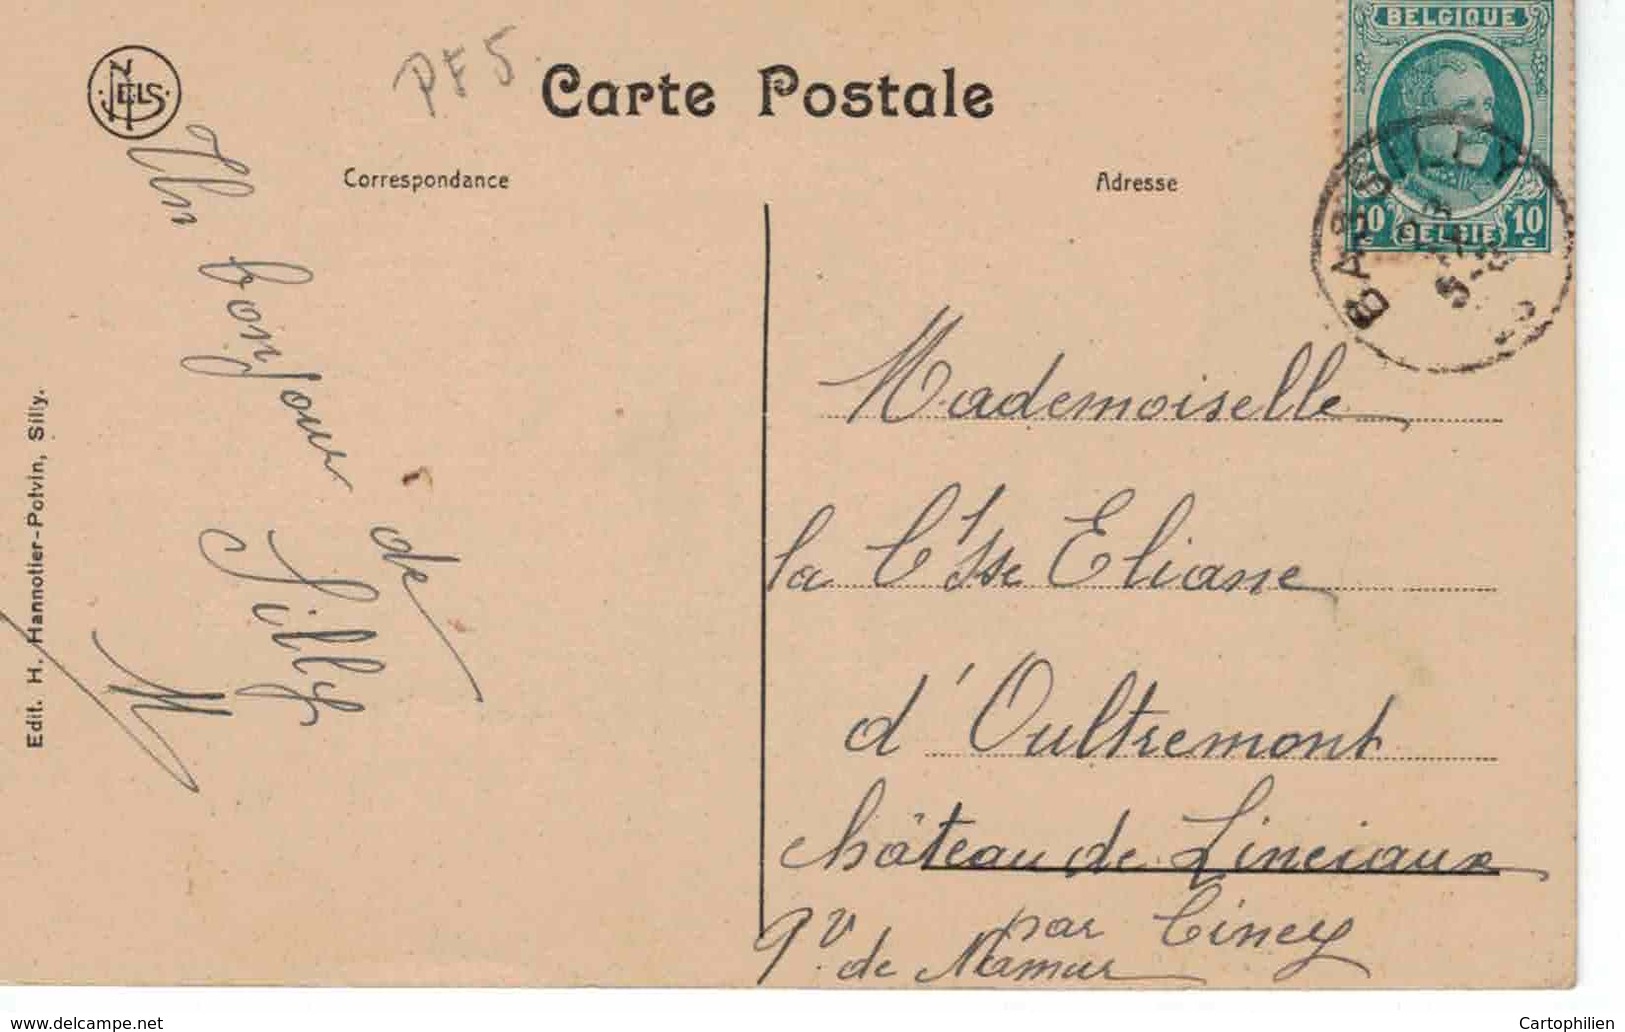 BELGIQUE
10 c BELGIE 10 c
NELS
PF5
Carte Postale
Correspondance
Adresse
BASSILLY
Un bonjour de
Silly
M
Edit. H. Hannotier-Potvin, Silly.
Mademoiselle
la C'sse Eliane
d'Oultremont
château de Linciaux
par Ciney
Pv. de Namur
www.delcampe.net
Cartophilien